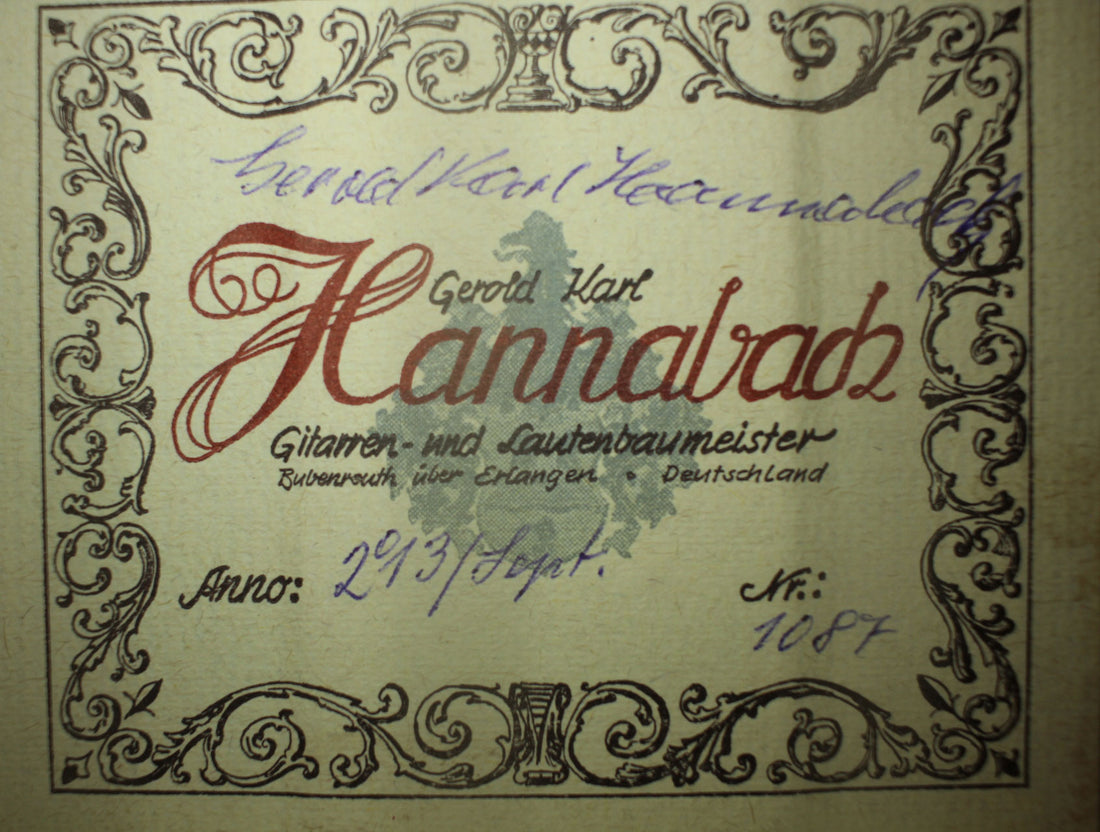 Gerold Karl Hannabach
Gerold Karl
Hannabach
Gitarren- und Lautenbaumeister
Bubenreuth über Erlangen • Deutschland
Anno: 2013/Sept.
Nr.:
1087